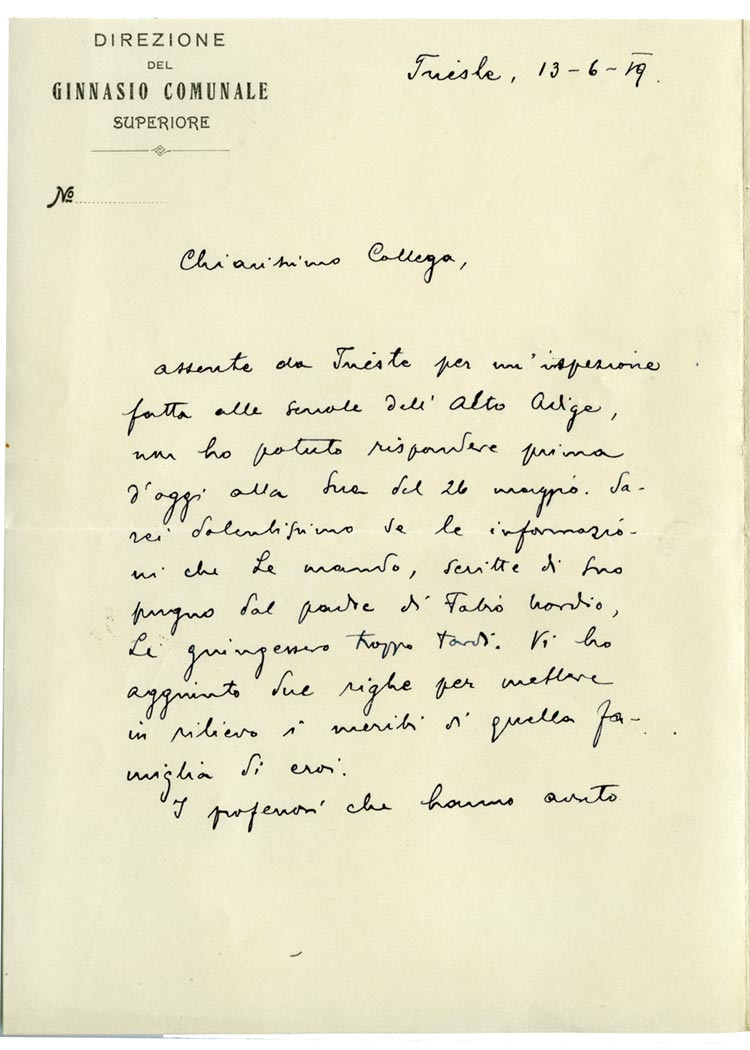 DIREZIONE
DEL
GINNASIO COMUNALE
SUPERIORE
No
Trieste, 13-6-19.
Chiarissimo Collega,
assente da Trieste per un'ispezione
fatta alle scuole dell'Alto Adige,
non ho potuto rispondere prima
d'oggi alla Sua del 26 maggio. Sa-
rei dolentissimo se le informazio-
ni che Le mando, scritte di suo
pugno dal padre di Fabio Nordio,
Le giungessero troppo tardi. Vi ho
aggiunto due righe per mettere
in rilievo i meriti di quella fa-
miglia di eroi.
I professori che hanno avuto